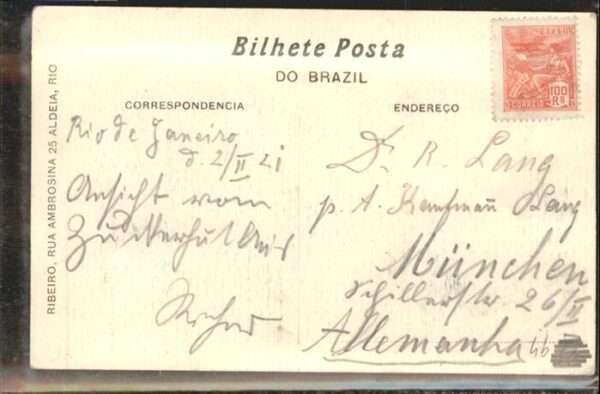 Bilhete Posta
DO BRAZIL
CORRESPONDENCIA
ENDEREÇO
RIBEIRO, RUA AMBROSINA 25 ALDEIA, RIO
BRASIL
CORREIO
100 RS
Rio de Janeiro
d. 2/II 21
Ansicht vom
Zuckerhut aus
Dr. R. Lang
p. A. Kaufmann Lang
München
Schillerstr. 26/II
Allemanha